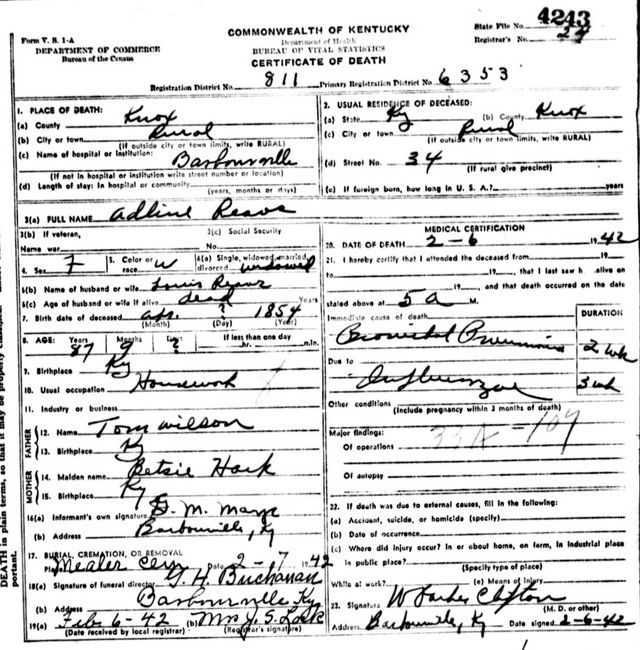 Form V. S. 1-A
DEPARTMENT OF COMMERCE
Bureau of the Census
COMMONWEALTH OF KENTUCKY
Department of Health
BUREAU OF VITAL STATISTICS
CERTIFICATE OF DEATH
State File No. 4243
Registrar's No. 24
Registration District No. 811 Primary Registration District No. 6353
1. PLACE OF DEATH:
(a) County Knox
(b) City or town Rural
(If outside city or town limits, write RURAL)
(c) Name of hospital or institution: Barbourville
(If not in hospital or institution write street number or location)
(d) Length of stay: In hospital or community
(years, months or days)
2. USUAL RESIDENCE OF DECEASED:
(a) State Ky (b) County Knox
(c) City or town Rural
(If outside city or town limits, write RURAL)
(d) Street No. 34
(If rural give precinct)
(e) If foreign born, how long in U. S. A.? years
3(a) FULL NAME Adline Reavs
3(b) If veteran, 3(c) Social Security
Name war No.
4. Sex F 5. Color or race W 6(a) Single, widowed, married, divorced widowed
6(b) Name of husband or wife Louis Reavs
6(c) Age of husband or wife if alive dead Years
7. Birth date of deceased Apr. ? 1854
(Month) (Day) (Year)
8. AGE: Years Months Days If less than one day
87 9 ? hr. min.
9. Birthplace Ky
10. Usual occupation Housework
11. Industry or business
FATHER
12. Name Tom Wilson
13. Birthplace Ky
MOTHER
14. Maiden name Betsie
15. Birthplace Ky
16(a) Informant's own signature
(b) Address Barbourville, Ky
17. BURIAL, CREMATION, OR REMOVAL
Place Mealer Cem 2-7 1942
18(a) Signature of funeral director G. H. Buchanan
(b) Address Barbourville Ky
19(a) Feb 6-42 (b) Mrs J. S. Lock
(Date received by local registrar) (Registrar's signature)
MEDICAL CERTIFICATION
20. DATE OF DEATH 2-6 1942
21. I hereby certify that I attended the deceased from 19
to 19 , that I last saw h alive on
19 , and that death occurred on the date
stated above at 5 a M.
DURATION
Immediate cause of death
Bronichal Pneumonia 2 wk
Due to
Influenzae 3 wk
Other conditions
(Include pregnancy within 3 months of death)
33A - 109
Major findings:
Of operations
Of autopsy
22. If death was due to external causes, fill in the following:
(a) Accident, suicide, or homicide (specify)
(b) Date of occurrence
(c) Where did injury occur? In or about home, on farm, in industrial place
in public place?
(Specify type of place)
While at work? (e) Means of injury
23. Signature W Clifton
(M. D. or other)
Address Barbourville, Ky Date signed 2-6-42
DEATH in plain terms, so that it may be properly classified.
portant.